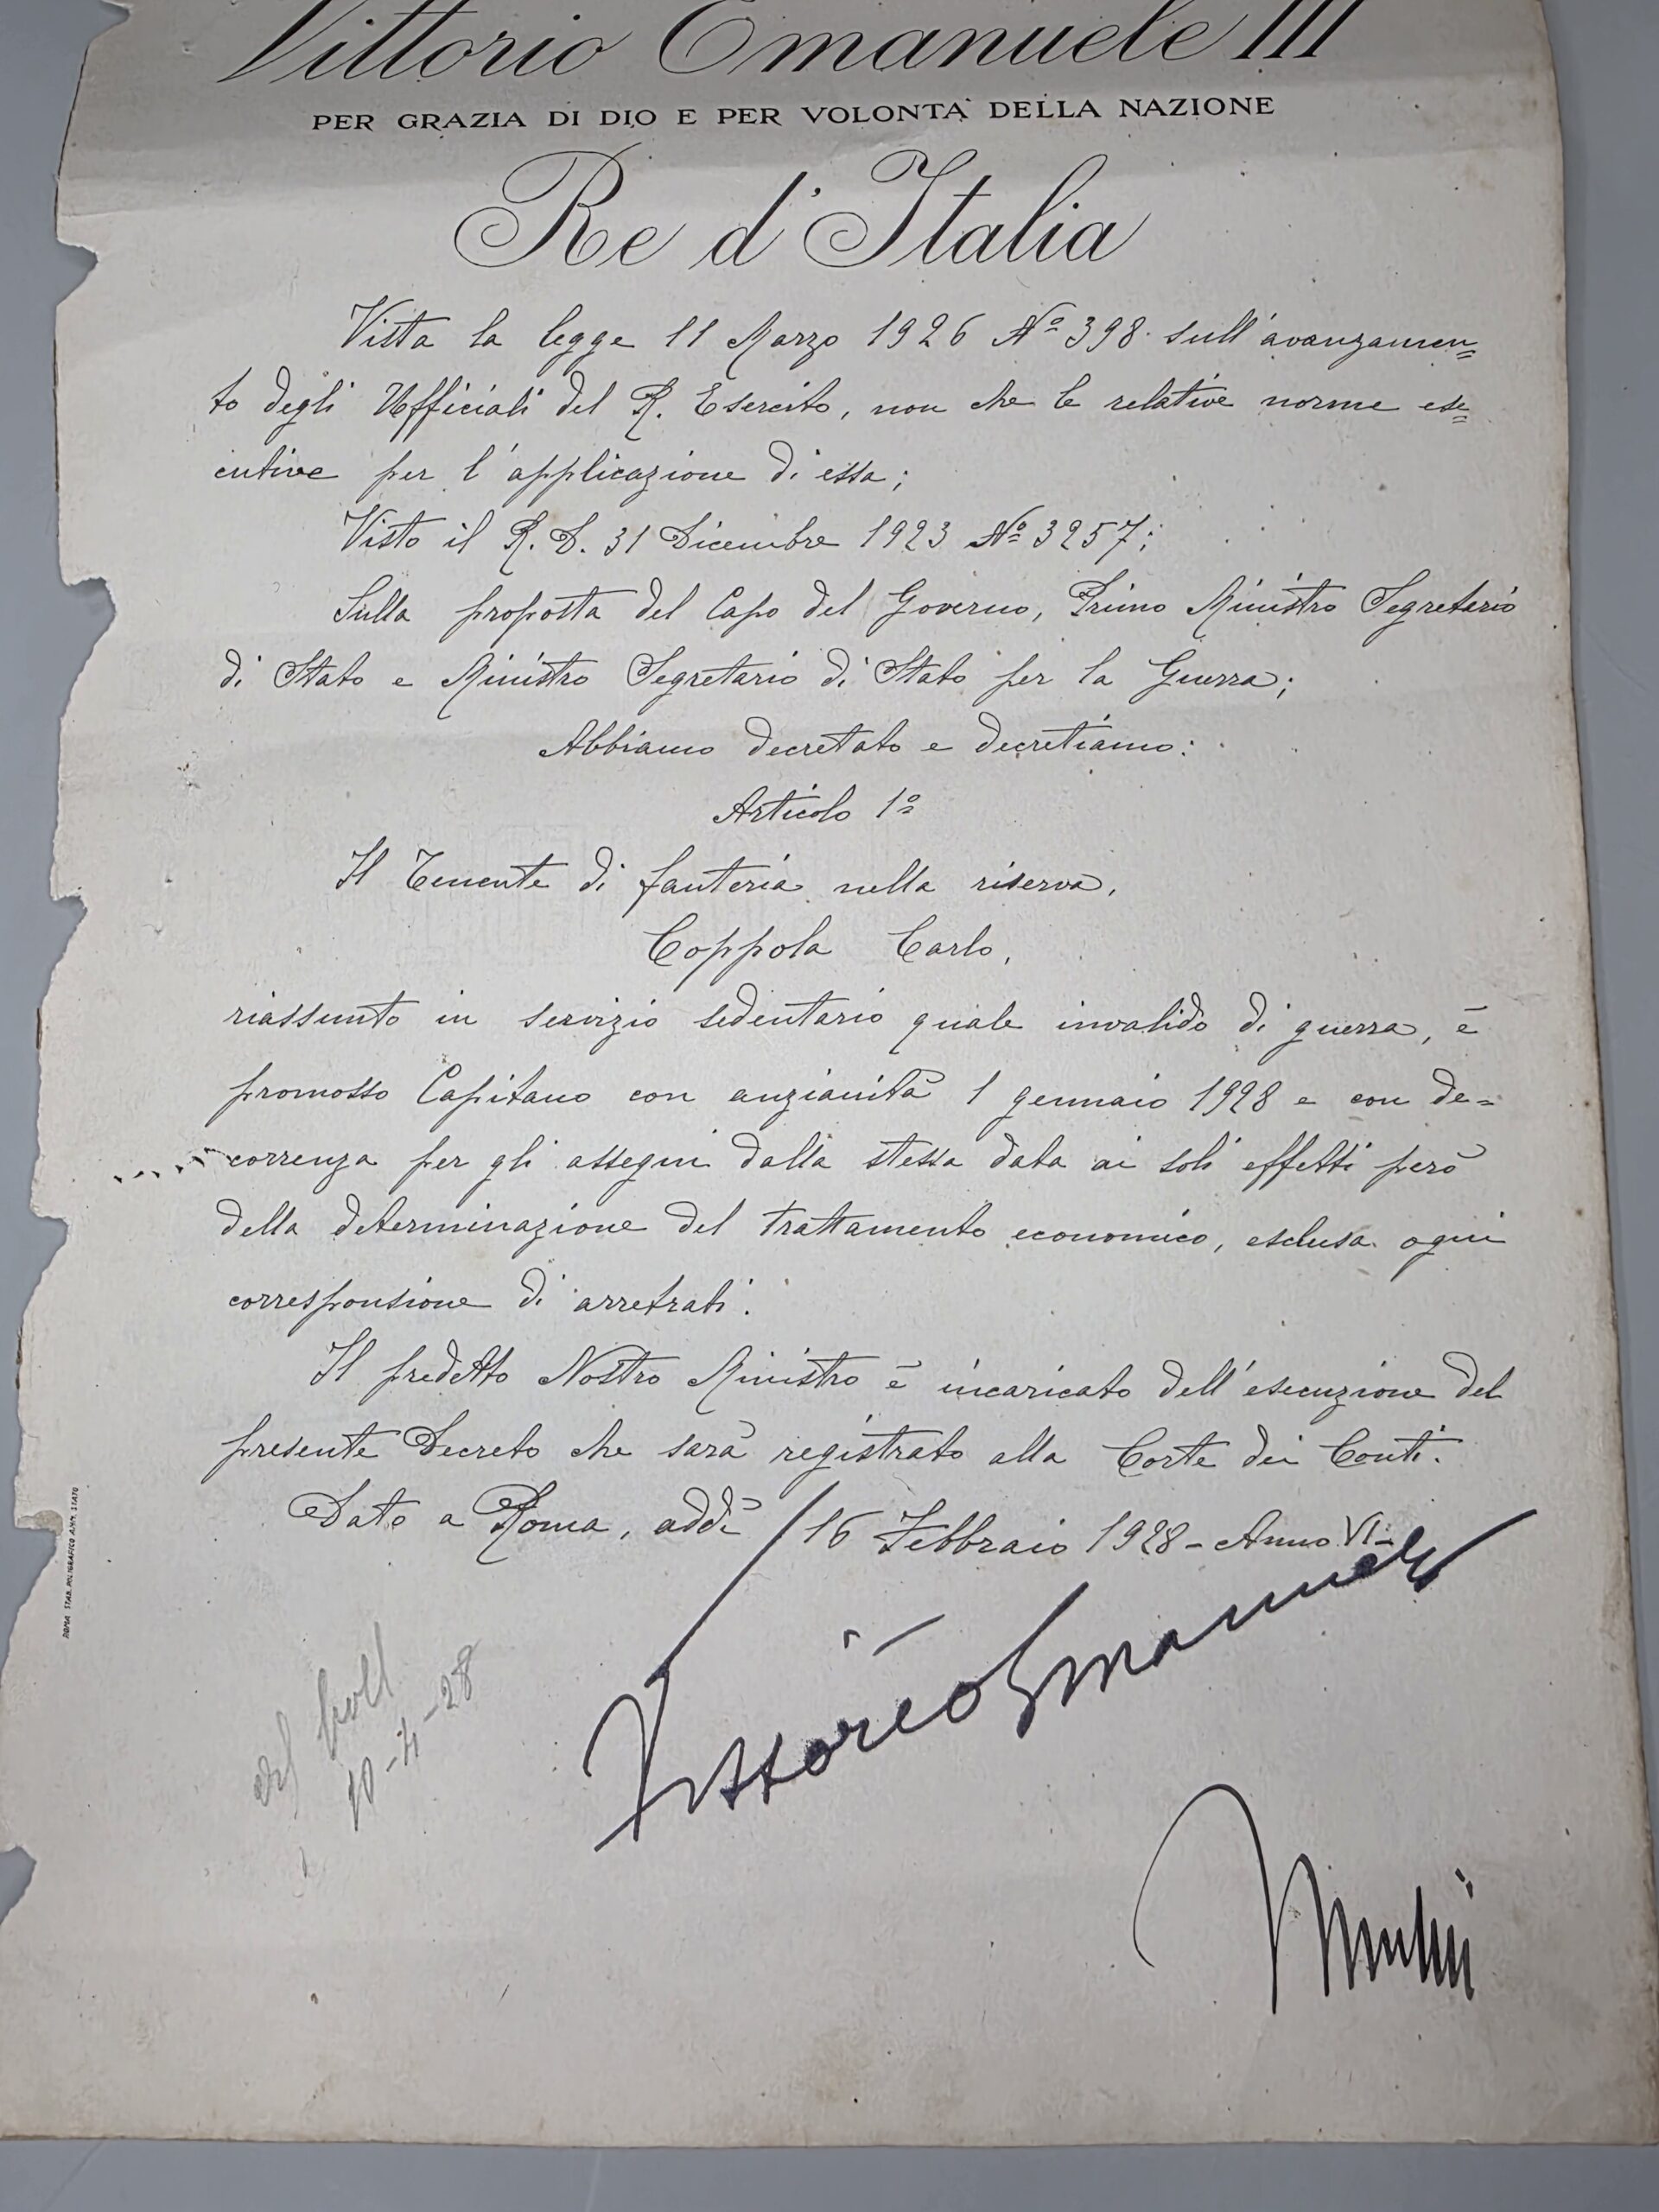 Vittorio Emanuele III
PER GRAZIA DI DIO E PER VOLONTÀ DELLA NAZIONE
Re d'Italia
Vista la legge 11 Marzo 1926 Nº 398 sull'avanzamen=
to degli Ufficiali del R. Esercito, non che le relative norme ese=
cutive per l'applicazione di essa;
Visto il R. D. 31 Dicembre 1923 Nº 3257;
Sulla proposta del Capo del Governo, Primo Ministro Segretario
di Stato e Ministro Segretario di Stato per la Guerra;
Abbiamo decretato e decretiamo:
Articolo 1º
Il Tenente di fanteria nella riserva,
Coppola Carlo,
riassunto in servizio sedentario quale invalido di guerra, è
promosso Capitano con anzianità 1 gennaio 1928 e con de=
correnza per gli assegni dalla stessa data ai soli effetti però
della determinazione del trattamento economico, esclusa ogni
corresponsione di arretrati.
Il predetto Nostro Ministro è incaricato dell'esecuzione del
presente Decreto che sarà registrato alla Corte dei Conti.
Dato a Roma, addì 16 Febbraio 1928 - Anno VI -
Vittorio Emanuele
boll
10-4-28
Mussolini
ROMA STAB. POLIGRAFICO AMM. STATO